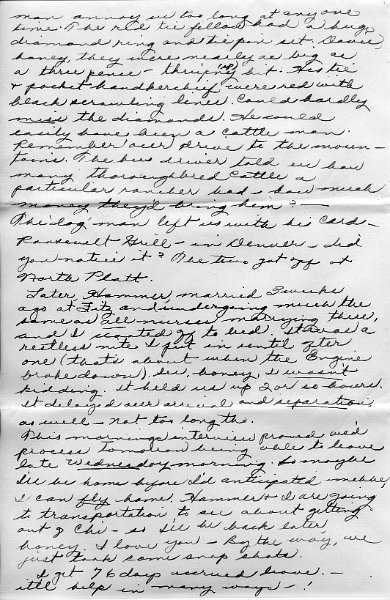 man annoy us too long at any one
time. The red tie fellow had a huge
diamond ring and tie pin set. Davie
honey, they were nearly as big as
a three pence - thrupny bit. His tie
& pocket handkerchief were red with
black scrawling lines. Could hardly
miss the diamonds. He could
easily have been a cattle man.
Remember our drive to the moun-
tains. The bus driver told us how
many thoroughbred cattle a
particular rancher had & how much
money they'd bring him? -
The dog man left us with his card -
Roosevelt Grill - in Denver - did
you notice it? The two got off at
North Platt.
Later, Hammer married 3 weeks
ago at Fitz and undergoing much the
same as all nurses marrying there,
and I went to bed. It was a
restless nite I put in until after
one (that's about when the Engine
broke down), See, honey, I wasn't
kidding. It held us up 2 or so hours.
It delayed our arrival and separation
as well - not too long tho.
This mornings interview proved we'd
process tomorrow being able to leave
late Wednesday morning. So maybe
I'll be home before I'd anticipated mebbe
I can fly home. Hammer & I are going
to transportation to see about getting
out of Chi - so I'll be back later
honey. I love you - By the way, we
just took some snap shots.
I get 76 days accrued leave. -
it'll help in many ways - !